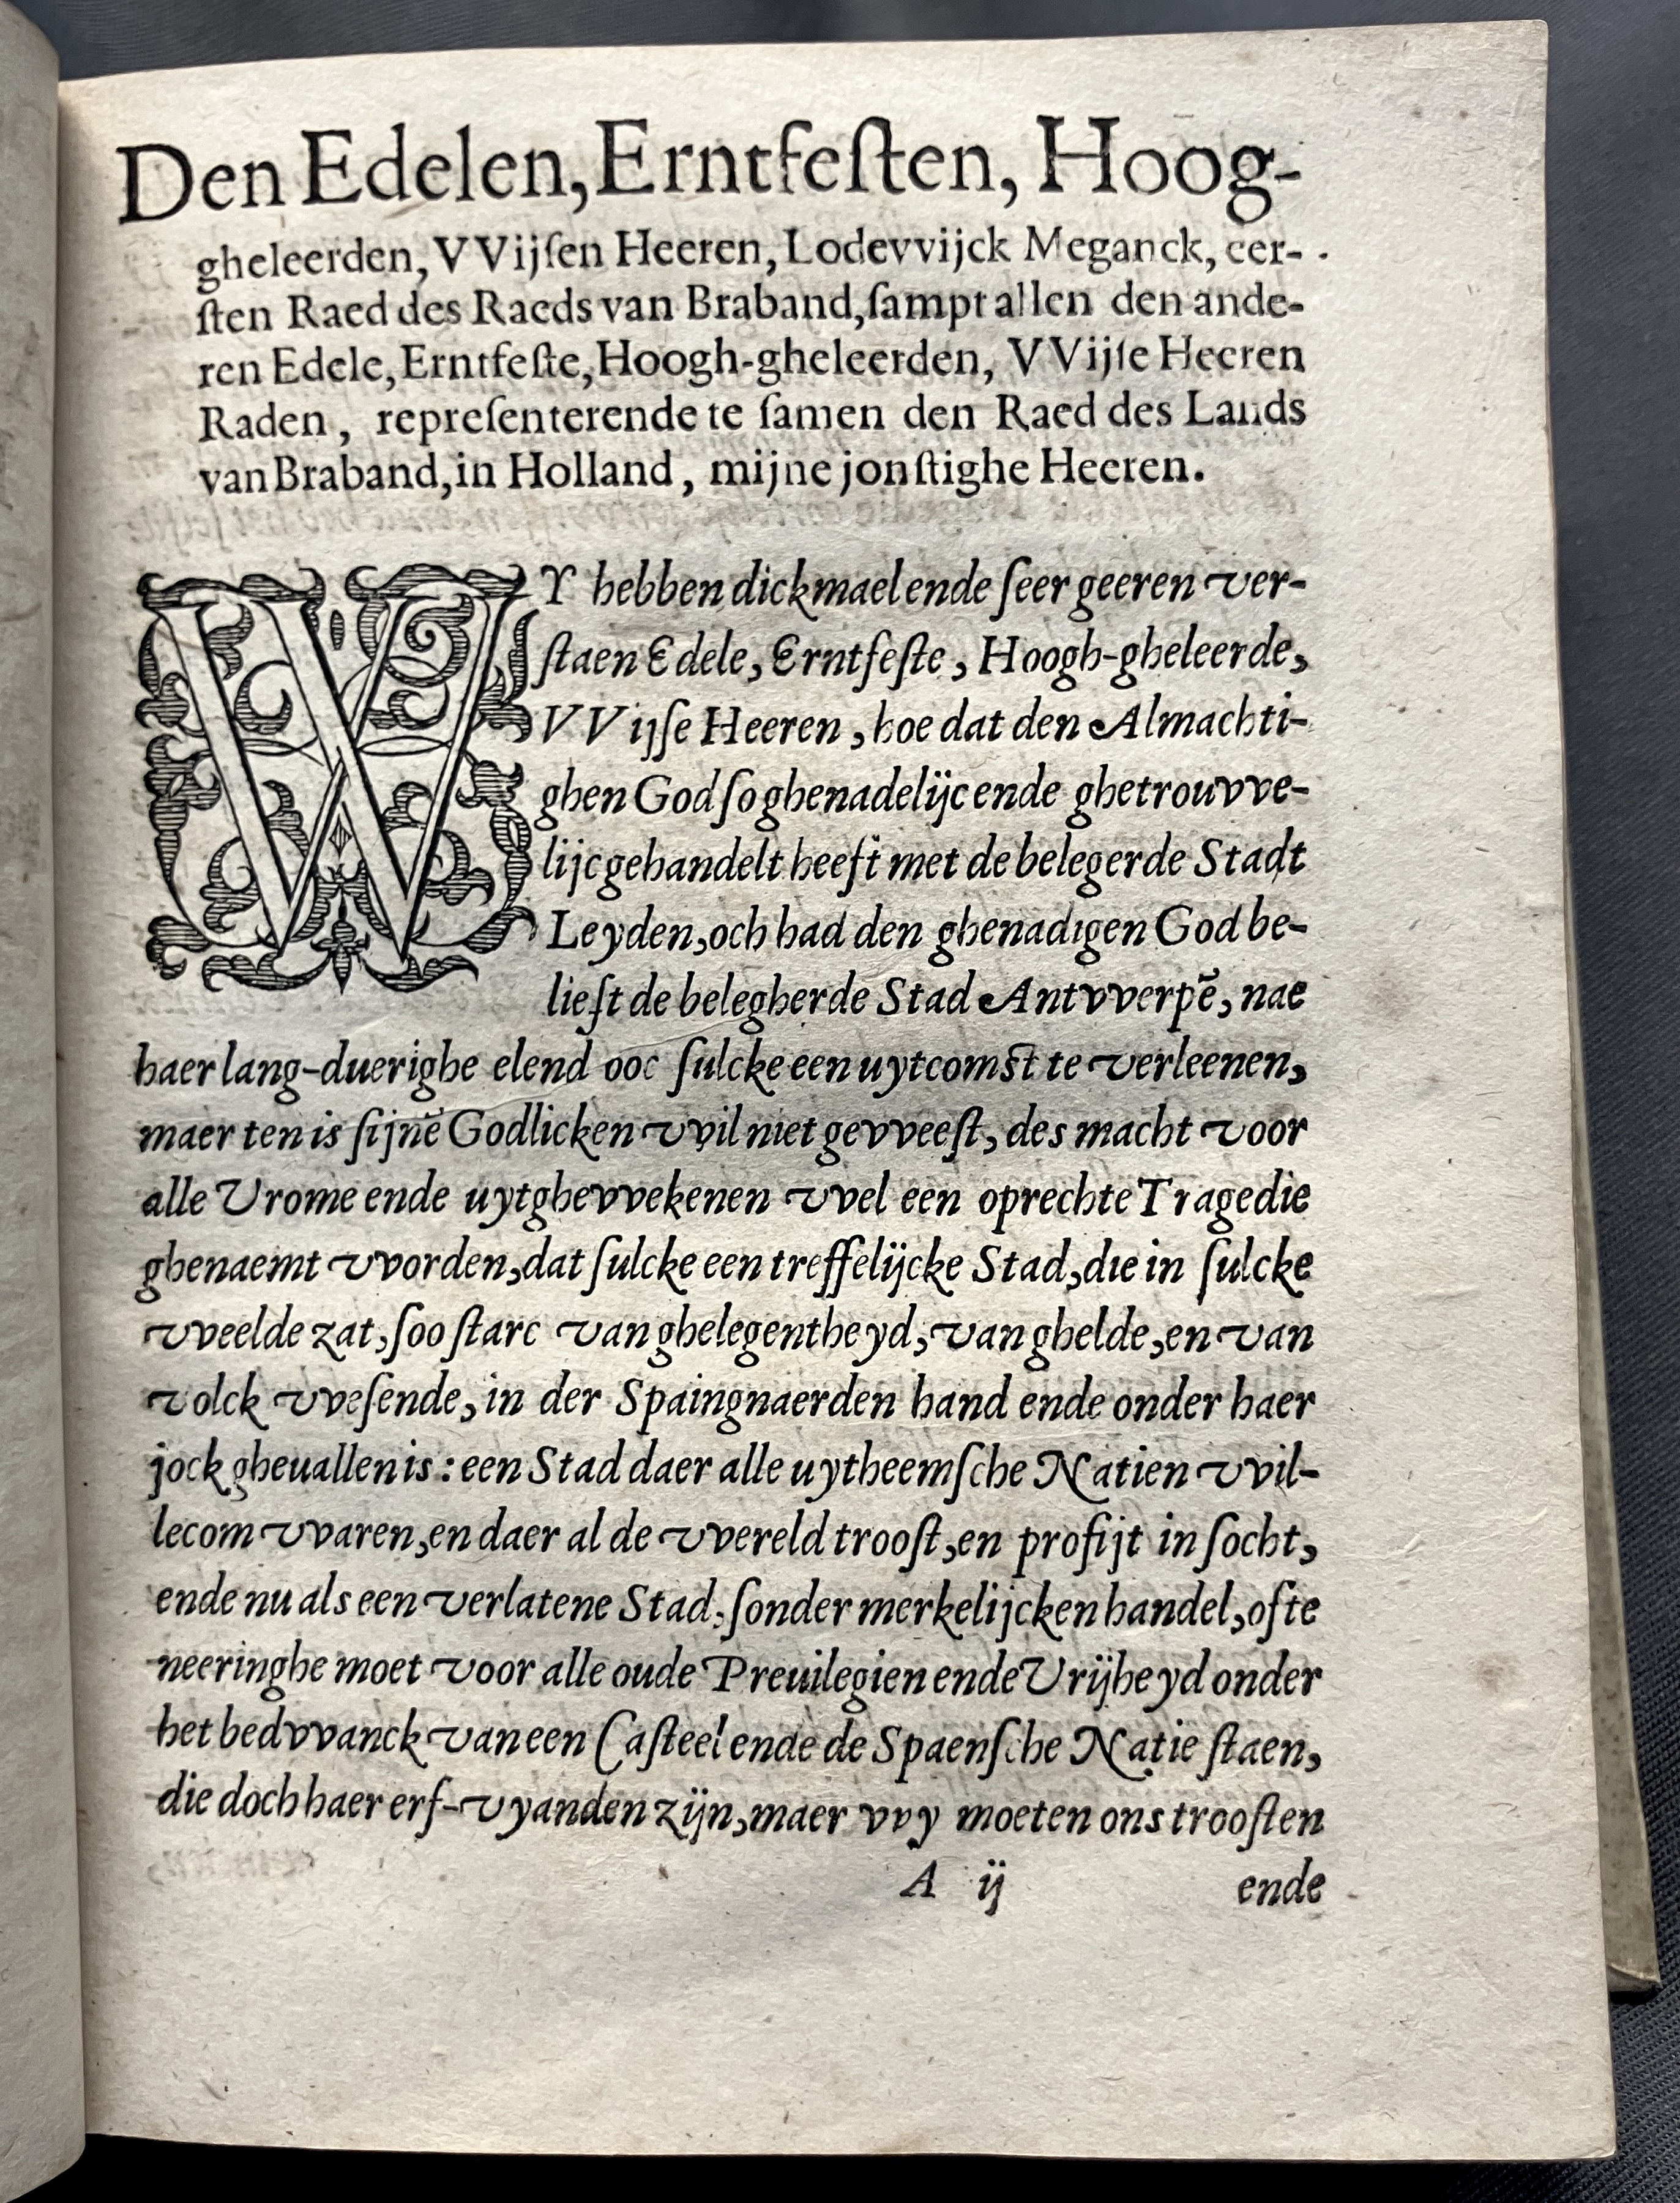 Den Edelen, Erntfeſten, Hoog-
gheleerden, VVijſen Heeren, Lodevvijck Meganck, eer-
ſten Raed des Raeds van Braband, ſampt allen den ande-
ren Edele, Erntfeſte, Hoogh-gheleerden, VVijſe Heeren
Raden, repreſenterende te ſamen den Raed des Lands
van Braband, in Holland, mijne jonſtighe Heeren.
WY hebben dickmael ende ſeer geeren ver-
ſtaen Edele, Erntfeſte, Hoogh-gheleerde,
VVijſe Heeren, hoe dat den Almachti-
ghen God ſo ghenadelijc ende ghetrouvve-
lijc gehandelt heeft met de belegerde Stadt
Leyden, och had den ghenadigen God be-
lieft de belegherde Stad Antvverpē, nae
haer lang-duerighe elend ooc ſulcke een uytcomſt te verleenen,
maer ten is ſijnē Godlicken vvil niet gevveeſt, des macht voor
alle Vrome ende uytghevvekenen vvel een oprechte Tragedie
ghenaemt vvorden, dat ſulcke een treffelijcke Stad, die in ſulcke
vveelde zat, ſoo ſtarc van ghelegentheyd, van ghelde, en van
volck vveſende, in der Spaingnaerden hand ende onder haer
jock gheuallen is: een Stad daer alle uytheemſche Natien vvil-
lecom vvaren, en daer al de vvereld trooſt, en profijt in ſocht,
ende nu als een verlatene Stad, ſonder merkelijcken handel, ofte
neeringhe moet voor alle oude Preuilegien ende Vrijheyd onder
het bedvvanck van een Caſteel ende de Spaenſche Natie ſtaen,
die doch haer erf-vyanden zijn, maer vvy moeten ons trooſten
A ij ende